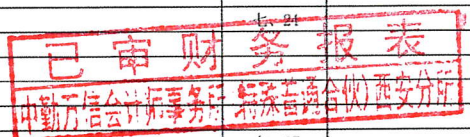 七、21
已审财务报表
中勤万信会计师事务所(特殊普通合伙)西安分所